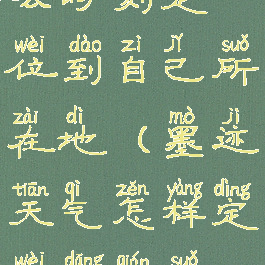 wèi dào zì jǐ suǒ
位到自己所
zài dì mò jì
在地（墨迹
tiān qì zěn yàng dìng
天气怎样定
wèi dāng qián suǒ